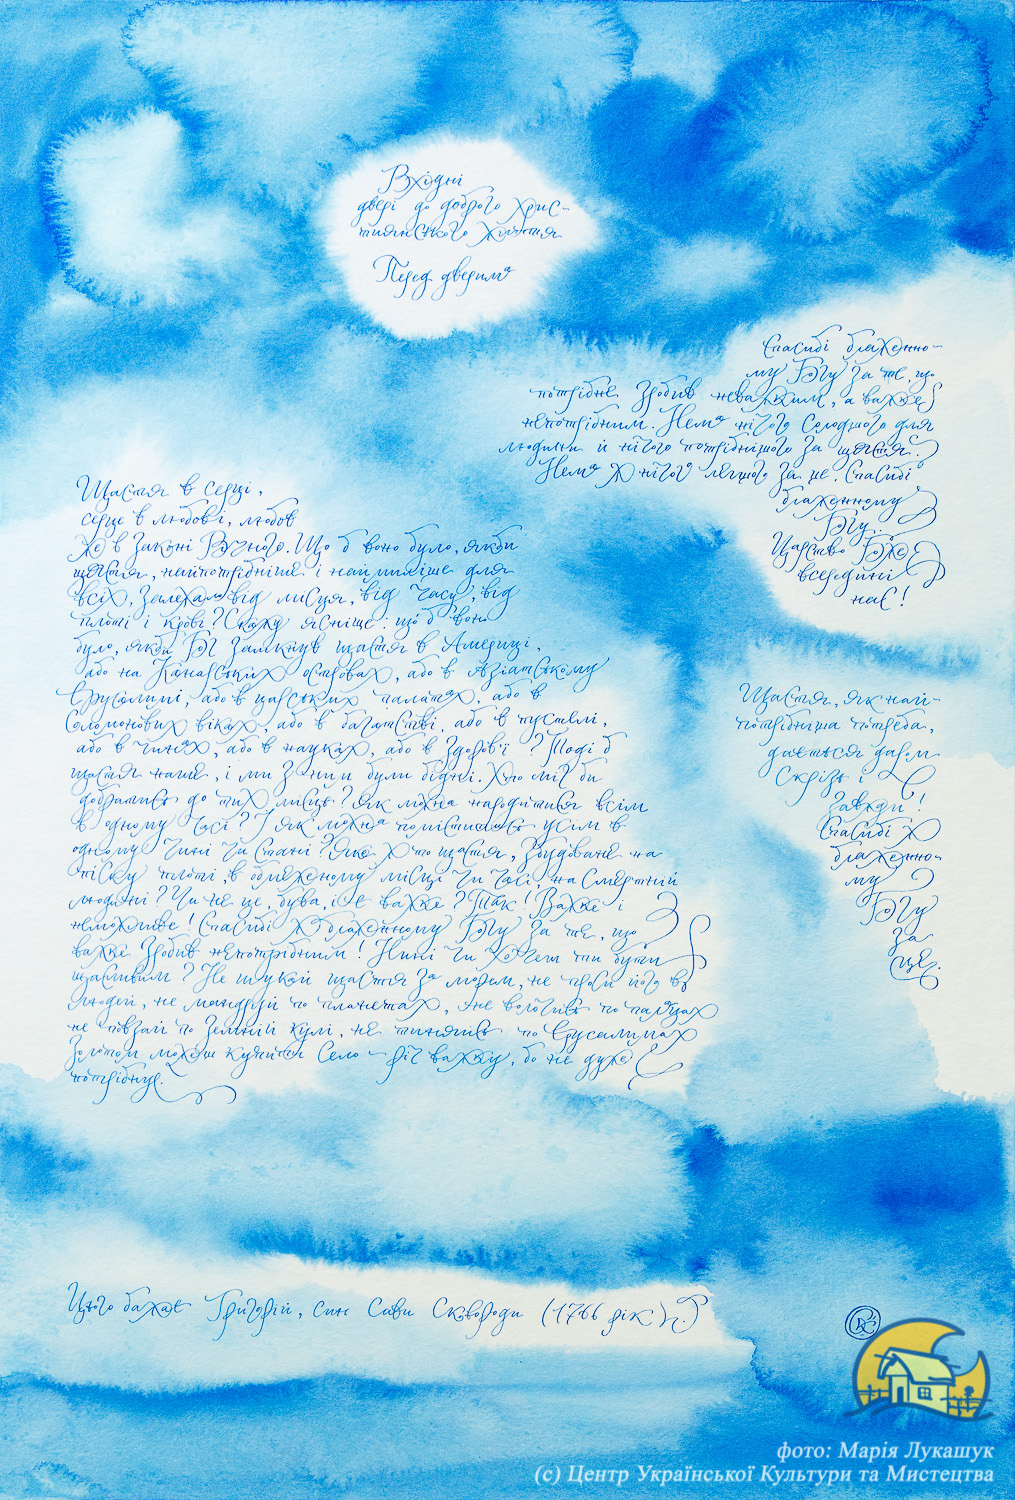 Вхідні
двері до доброго хрис-
тиянського життя
Перед дверима
Спасибі блаженно-
му Богу за те, що
потрібне зробив неважким, а важке
непотрібним. Нема нічого солодшого для
людини й нічого потрібнішого за щастя.
Нема ж нічого легшого за це. Спасибі
блаженному
Богу.
Царство Боже
всередині
нас!
Щастя в серці,
серце в любові, любов
же в законі Вічного. Що б воно було, якби
щастя, найпотрібніше і наймиліше для
всіх, залежало від місця, від часу, від
плоті і крові? Скажу ясніше: що б воно
було, якби Бог замкнув щастя в Америці,
або на Канарських островах, або в Азіатському
Єрусалимі, або в царських палатах, або в
Соломонових віках, або в багатстві, або в пустелі,
або в чинах, або в науках, або в здоров'ї? Тоді б
щастя наше, і ми з ним були бідні. Хто міг би
добратись до тих місць? Як можна народитися всім
в одному часі? І як можна помістишись усім в
одному чині чи стані? Яке ж то щастя, збудоване на
піску плоті, в обмеженому місці чи часі, на смертній
людині? Чи не це, бува, і є важке? Так! Важке і
неможливе! Спасибі ж блаженному Богу за те, що
важке зробив непотрібним! Нині чи хочеш ти бути
щасливим? Не шукай щастя за морем, не проси його в
людей, не мандруй по планетах, не волочись по палацах
не повзай по земній кулі, не тиняйсь по Єрусалимах
Золотом можеш купити село – річ важку, бо не дуже
потрібну.
Щастя, як най-
потрібніша потреба,
дається даром
скрізь і
завжди!
Спасибі ж
блаженно-
му
Богу
за
це.
Цього бажає Григорій, син Сави Сковороди (1766 рік).
фото: Марія Лукашук
(с) Центр Української Культури та Мистецтва